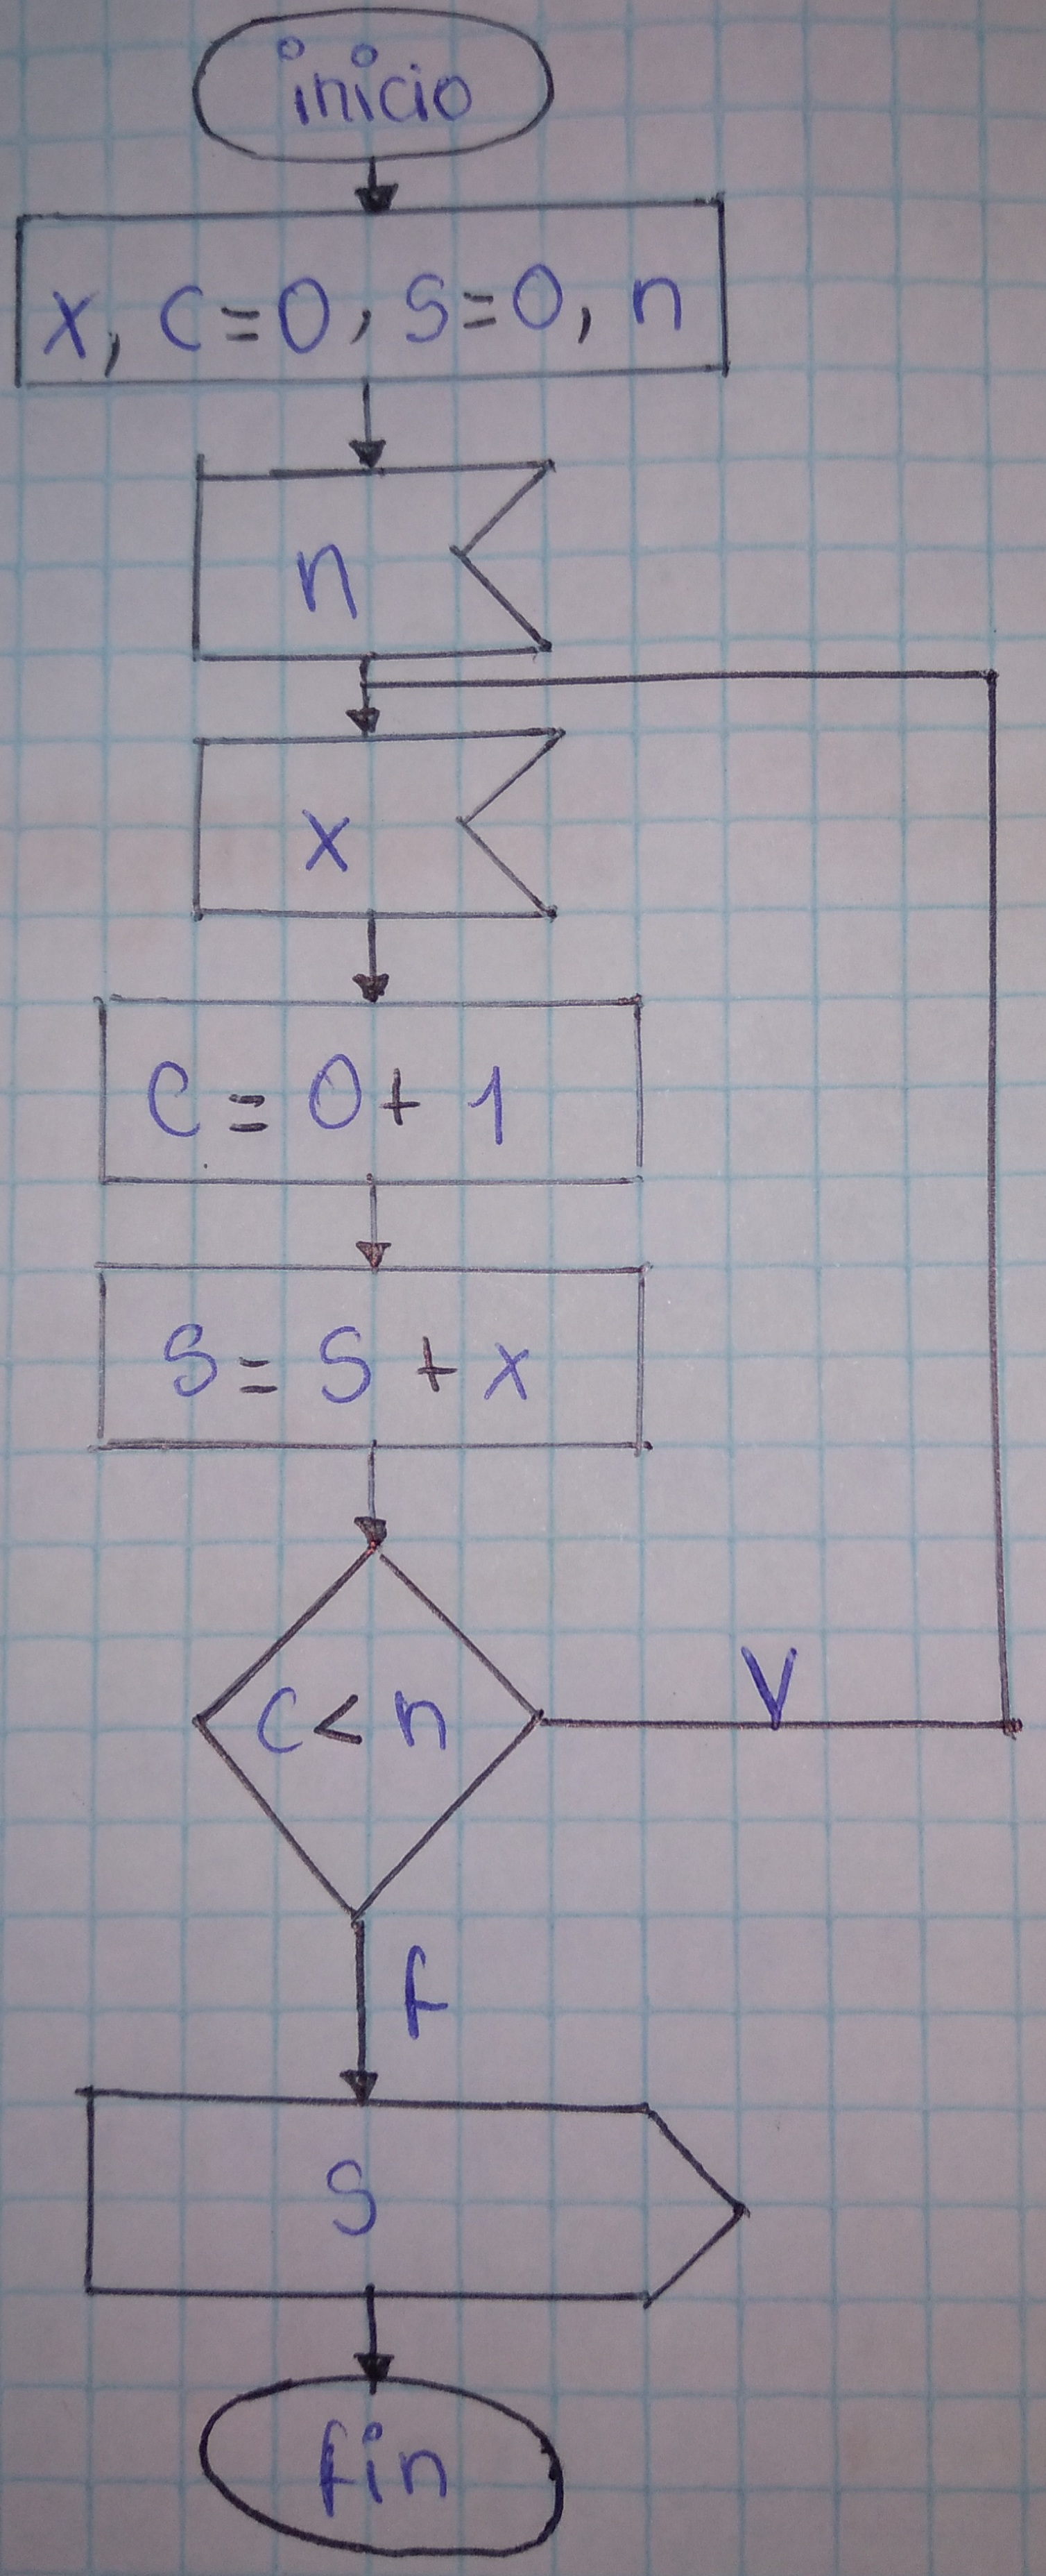 inicio
x, c=0, s=0, n
n
x
c = 0 + 1
s = s + x
c < n
V
f
s
fin